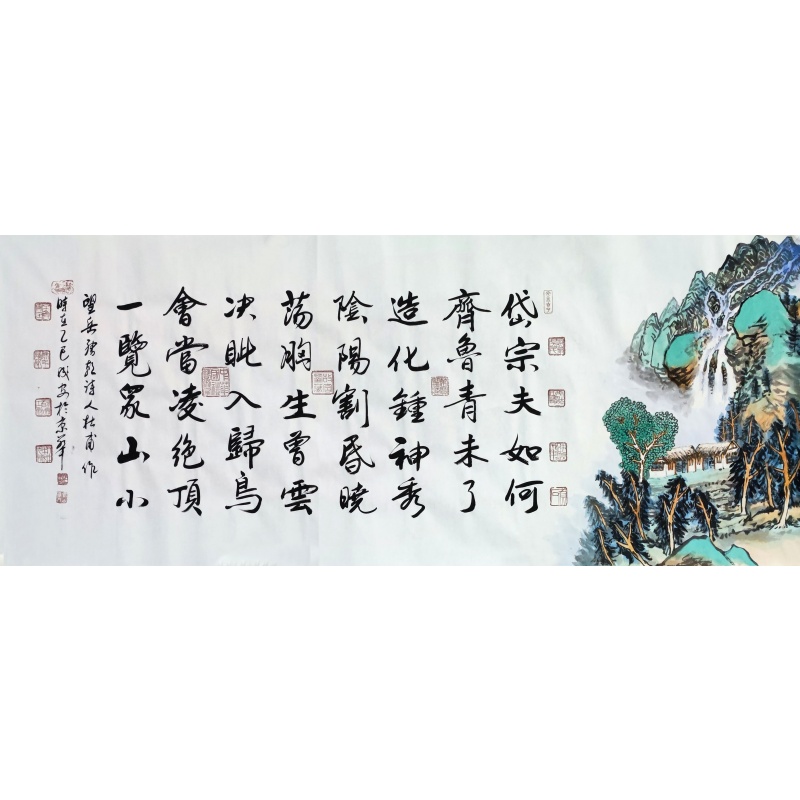 岱宗夫如何
齊魯青未了
造化鍾神秀
陰陽割昏曉
蕩胸生曾雲
決眦入歸鳥
會當凌絶頂
一覽眾山小
望岳唐朝詩人杜甫作
時在乙巳於京華